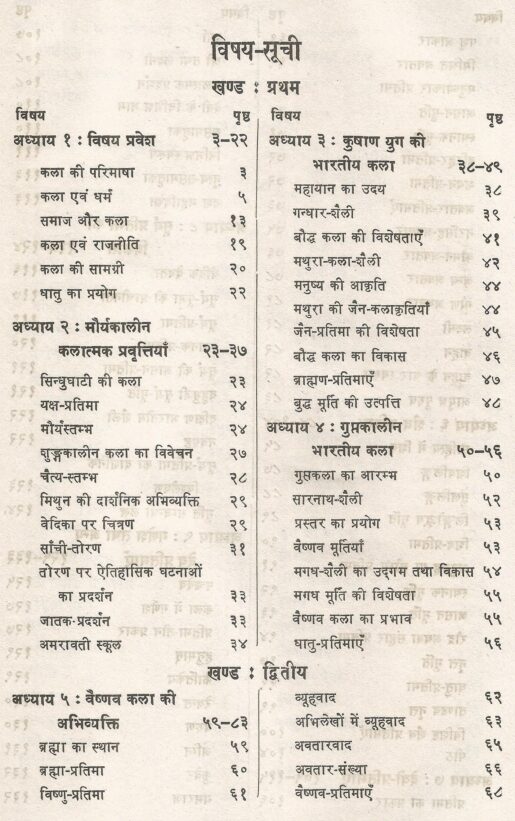 विषय-सूची
खण्ड : प्रथम
विषय पृष्ठ
अध्याय १ : विषय प्रवेश ३-२२
कला की परिभाषा ३
कला एवं धर्म ५
समाज और कला १३
कला एवं राजनीति १९
कला की सामग्री २०
धातु का प्रयोग २२
अध्याय २ : मौर्यकालीन
कलात्मक प्रवृत्तियाँ २३-३७
सिन्धुघाटी की कला २३
यक्ष-प्रतिमा २४
मौर्यस्तम्भ २४
शुङ्गकालीन कला का विवेचन २७
चैत्य-स्तम्भ २८
मिथुन की दार्शनिक अभिव्यक्ति २९
वेदिका पर चित्रण २९
साँची-तोरण ३१
तोरण पर ऐतिहासिक घटनाओं
का प्रदर्शन ३३
जातक-प्रदर्शन ३३
अमरावती स्कूल ३४
विषय पृष्ठ
अध्याय ३ : कुषाण युग की
भारतीय कला ३८-४९
महायान का उदय ३८
गन्धार-शैली ३९
बौद्ध कला की विशेषताएँ ४१
मथुरा-कला-शैली ४२
मनुष्य की आकृति ४४
मथुरा की जैन-कलाकृतियाँ ४४
जैन-प्रतिमा की विशेषता ४५
बौद्ध कला का विकास ४६
ब्राह्मण-प्रतिमाएँ ४७
बुद्ध मूर्ति की उत्पत्ति ४८
अध्याय ४ : गुप्तकालीन
भारतीय कला ५०-५६
गुप्तकला का आरम्भ ५०
सारनाथ-शैली ५२
प्रस्तर का प्रयोग ५३
वैष्णव मूर्तियाँ ५३
मगध-शैली का उद्गम तथा विकास ५४
मगध मूर्ति की विशेषता ५५
वैष्णव कला का प्रभाव ५५
धातु-प्रतिमाएँ ५६
खण्ड : द्वितीय
अध्याय ५ : वैष्णव कला की
अभिव्यक्ति ५९-८३
ब्रह्मा का स्थान ५९
ब्रह्मा-प्रतिमा ६०
विष्णु-प्रतिमा ६१
व्यूहवाद ६२
अभिलेखों में व्यूहवाद ६३
अवतारवाद ६५
अवतार-संख्या ६६
वैष्णव-प्रतिमाएँ ६८